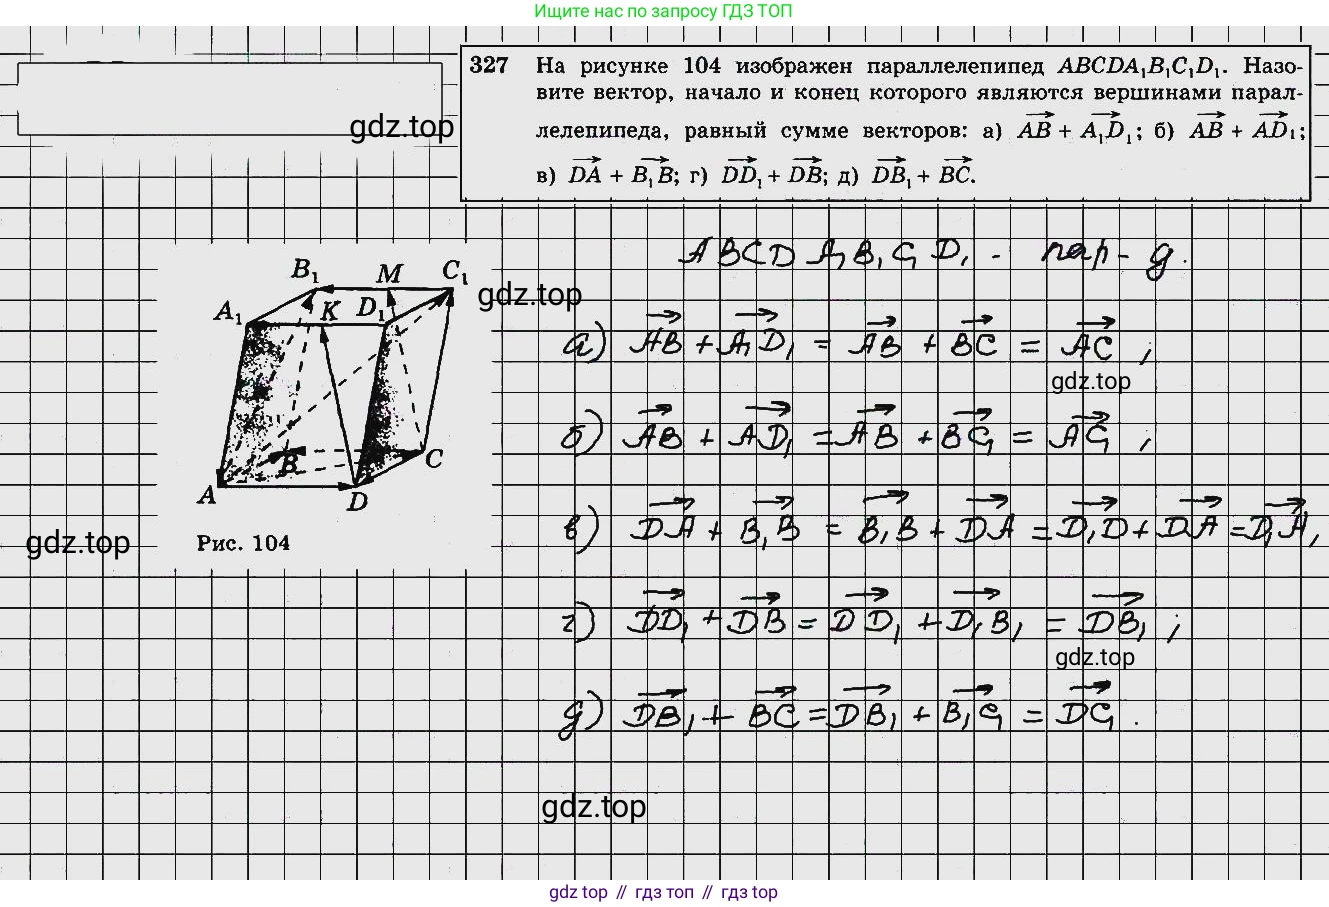 Ищите нас по запросу ГДЗ ТОП
327 На рисунке 104 изображен параллелепипед ABCDA₁B₁C₁D₁. Назо-
вите вектор, начало и конец которого являются вершинами парал-
лелепипеда, равный сумме векторов: а) AB + A₁D₁; б) AB + AD₁;
в) DA + B₁B; г) DD₁ + DB; д) DB₁ + BC.
gdz.top
ABCD A₁B₁C₁D₁ - пар-д.
B₁ M C₁
gdz.top
A₁ K D₁
а) AB + A₁D₁ = AB + BC = AC ;
gdz.top
б) AB + AD₁ = AB + BC₁ = AC₁ ;
B C
A D
в) DA + B₁B = B₁B + DA = D₁D + DA = D₁A ,
gdz.top
Рис. 104
г) DD₁ + DB = DD₁ + D₁B₁ = DB₁ ;
gdz.top
д) DB₁ + BC = DB₁ + B₁C₁ = DC₁ .
gdz.top
gdz top // гдз топ // gdz top